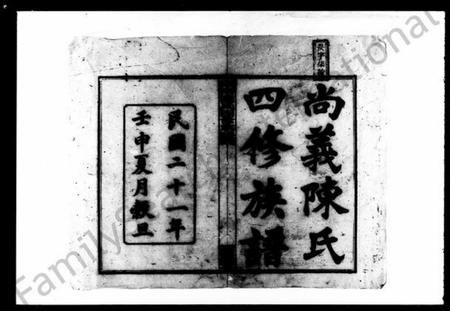 尚義陳氏
四修族譜
民國二十一年
壬申夏月穀旦
FamilySearch International